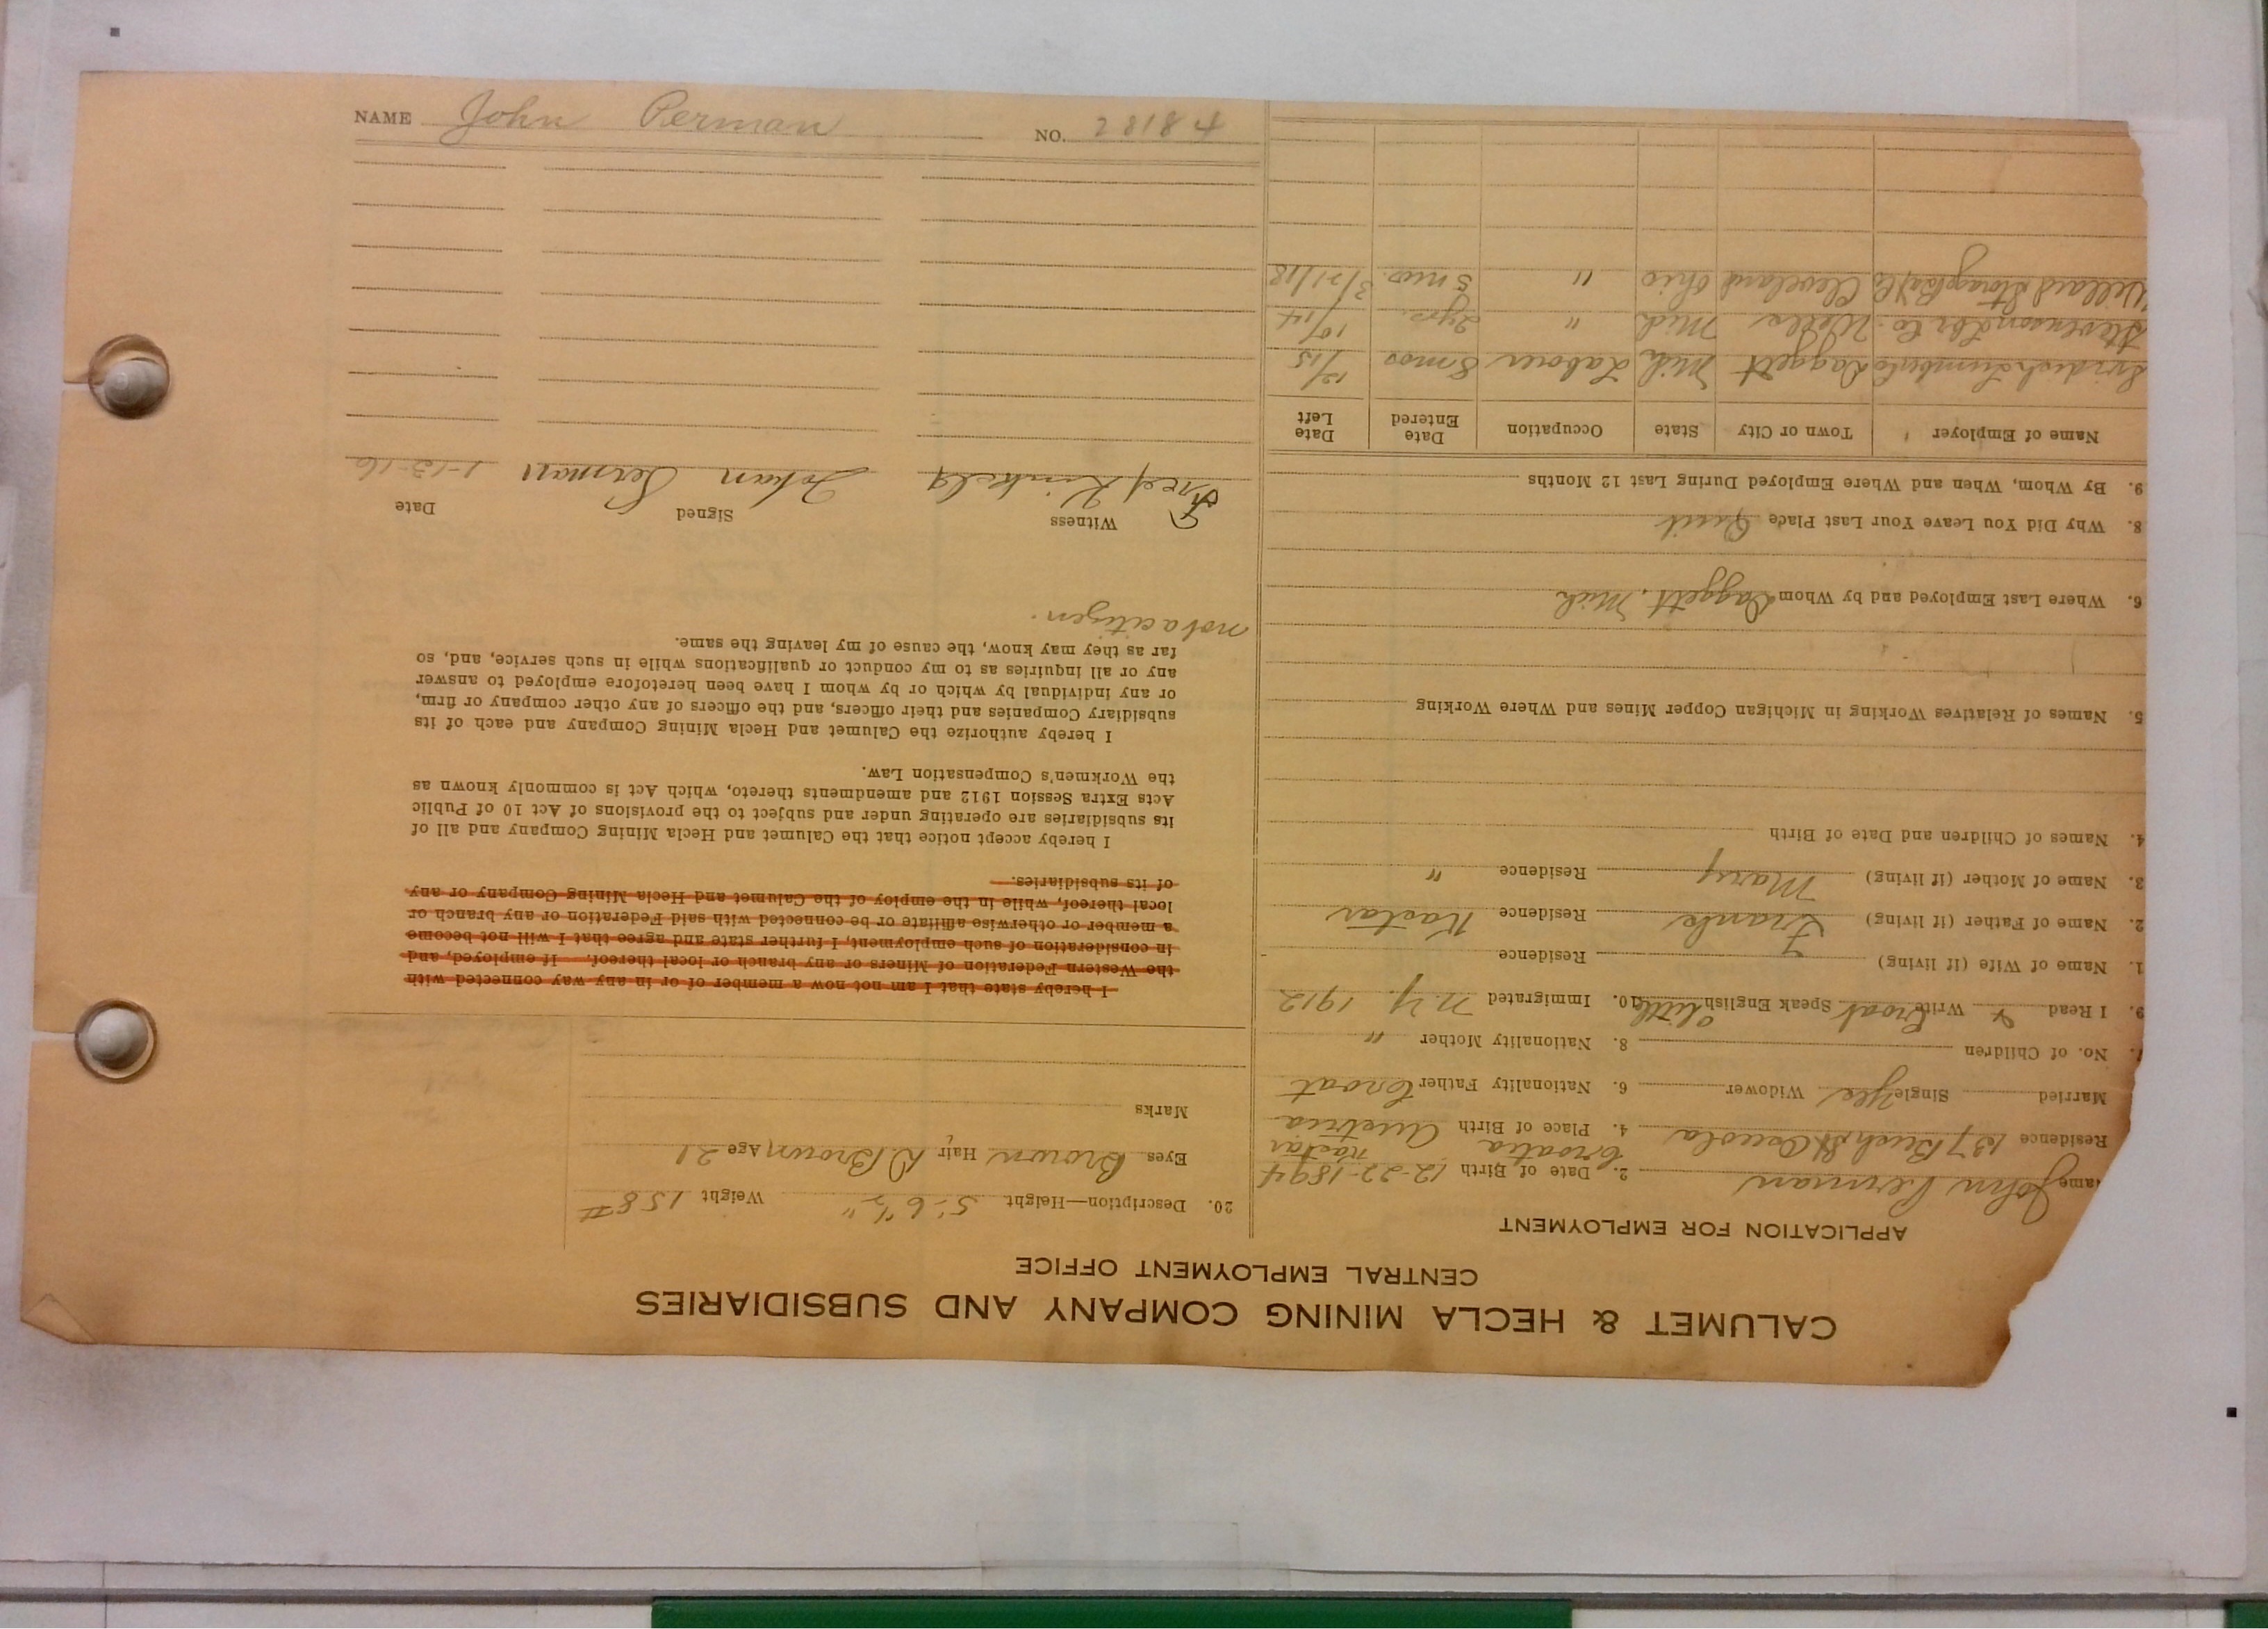 CALUMET & HECLA MINING COMPANY AND SUBSIDIARIES
CENTRAL EMPLOYMENT OFFICE
APPLICATION FOR EMPLOYMENT
Name John Perman 2. Date of Birth 12-22-1894
Residence 137 Bush St Osceola 4. Place of Birth Croatia Kastar Austria
Married Single Yes Widower 6. Nationality Father Croat
7. No. of Children 8. Nationality Mother "
9. I Read & Write Croat Speak English little 10. Immigrated N.Y. 1912
1. Name of Wife (if living) Residence
2. Name of Father (if living) Frank Residence Kastar
3. Name of Mother (if living) Mary Residence "
4. Names of Children and Date of Birth
5. Names of Relatives Working in Michigan Copper Mines and Where Working
6. Where Last Employed and by Whom Daggett, Mich
8. Why Did You Leave Your Last Place Quit
9. By Whom, When and Where Employed During Last 12 Months
Name of Employer Town or City State Occupation Date Entered Date Left
Lumber Co Daggett Mich Laborer 8 mos 12/15
Stevenson Lbr Co. Wells Mich " 2 yrs. 10/14
Willard Storage Bat Co Cleveland Ohio " 5 mos. 3/21/18
20. Description—Height 5'-6½" Weight 158#
Eyes Brown Hair D. Brown Age 21
Marks
I hereby state that I am not now a member of or in any way connected with
the Western Federation of Miners or any branch or local thereof. If employed, and
in consideration of such employment, I further state and agree that I will not become
a member or otherwise affiliate or be connected with said Federation or any branch or
local thereof, while in the employ of the Calumet and Hecla Mining Company or any
of its subsidiaries.
I hereby accept notice that the Calumet and Hecla Mining Company and all of
its subsidiaries are operating under and subject to the provisions of Act 10 of Public
Acts Extra Session 1912 and amendments thereto, which Act is commonly known as
the Workmen's Compensation Law.
I hereby authorize the Calumet and Hecla Mining Company and each of its
subsidiary Companies and their officers, and the officers of any other company or firm,
or any individual by which or by whom I have been heretofore employed to answer
any or all inquiries as to my conduct or qualifications while in such service, and, so
far as they may know, the cause of my leaving the same.
not a citizen.
Witness Signed Date
Fred Perman 1-13-16
NAME John Perman NO. 28184